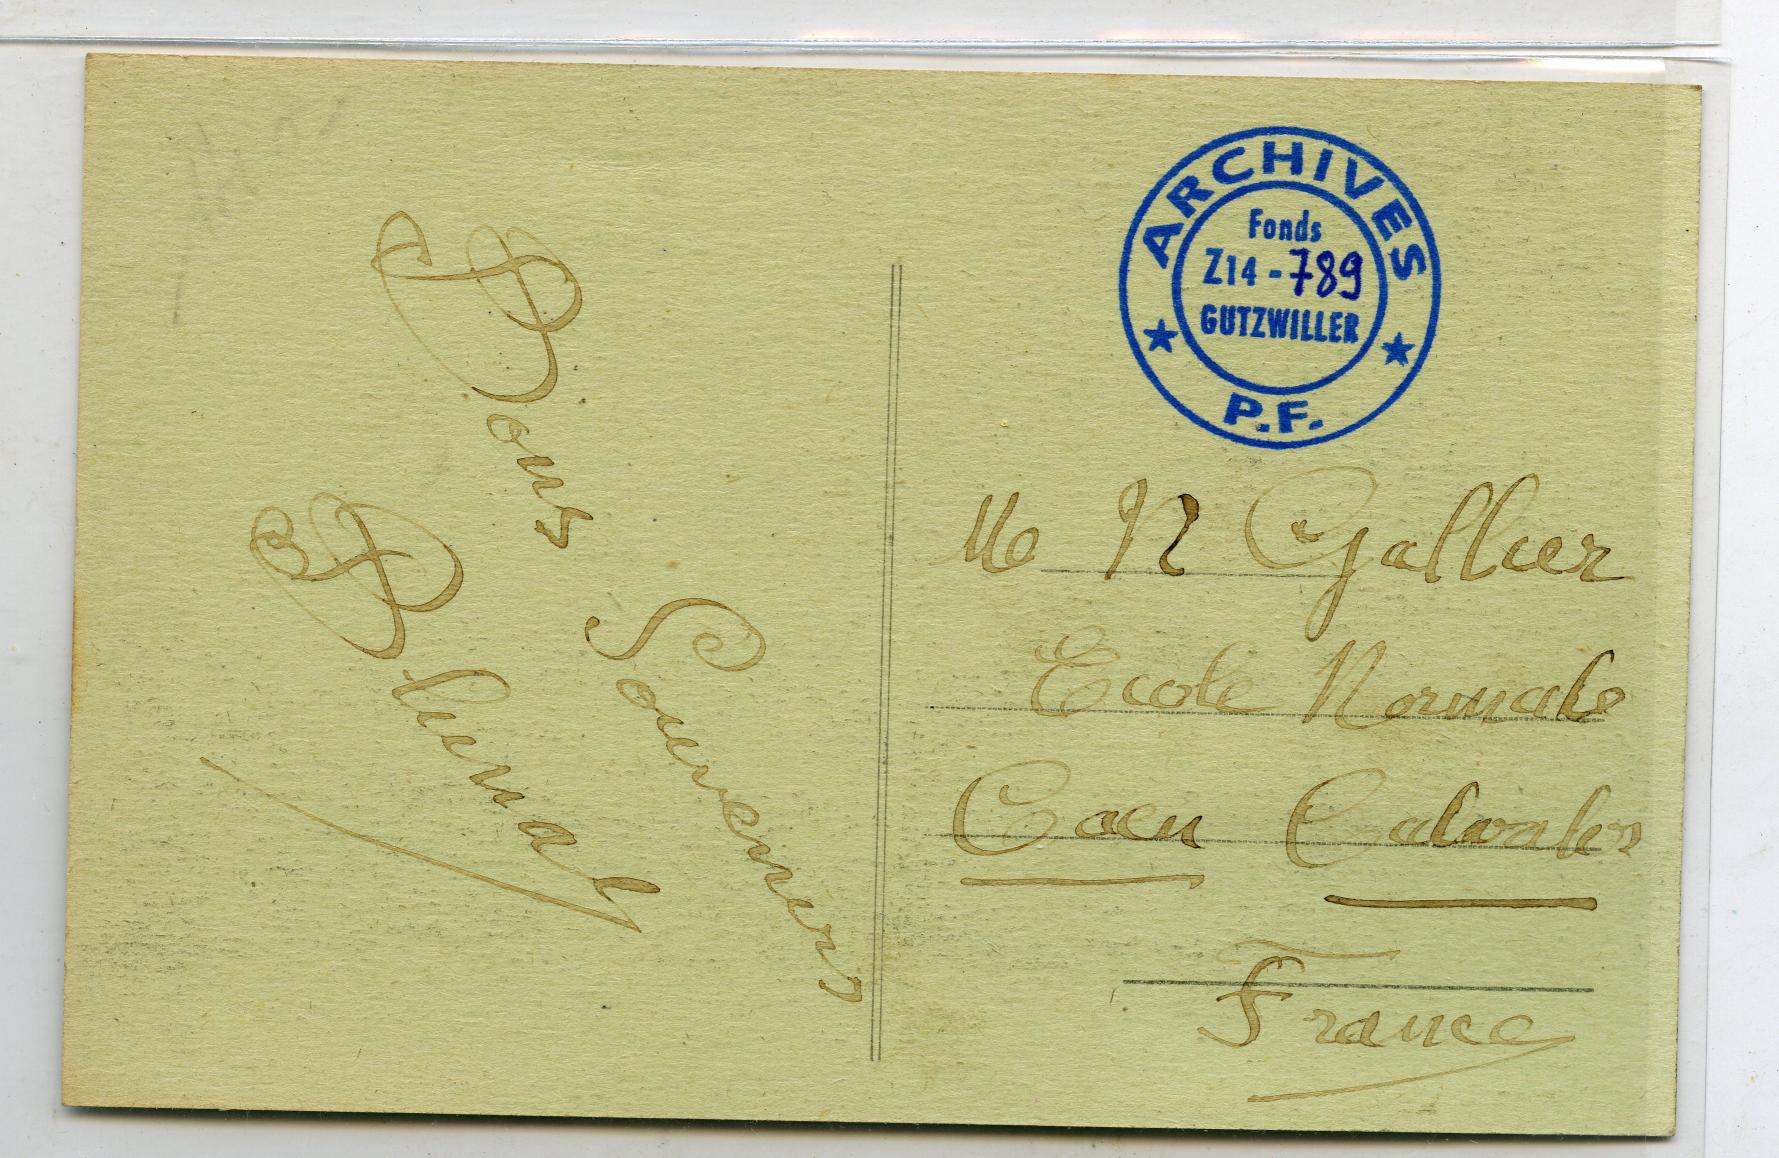 Bons Souvenirs
ARCHIVES
Fonds
Z14-789
GUTZWILLER
P.F.
N Gallier
Ecole Normale
Caen Calvados
France